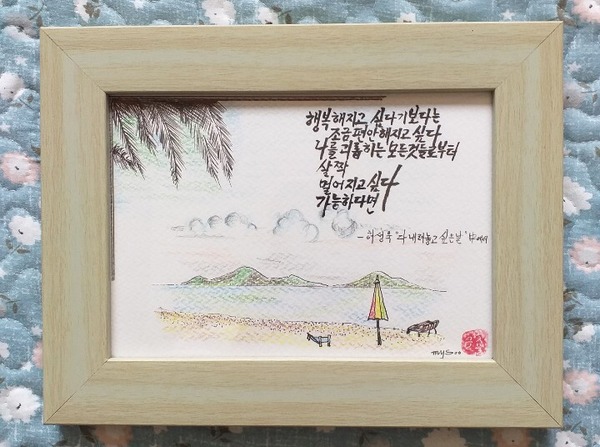 행복해지고 싶다기보다는
조금 편안해지고 싶다
나를 괴롭히는 모든것들로부터
살짝
멀어지고 싶다
가능하다면
"다 내려놓고 싶은 날" 中에서
mysoo